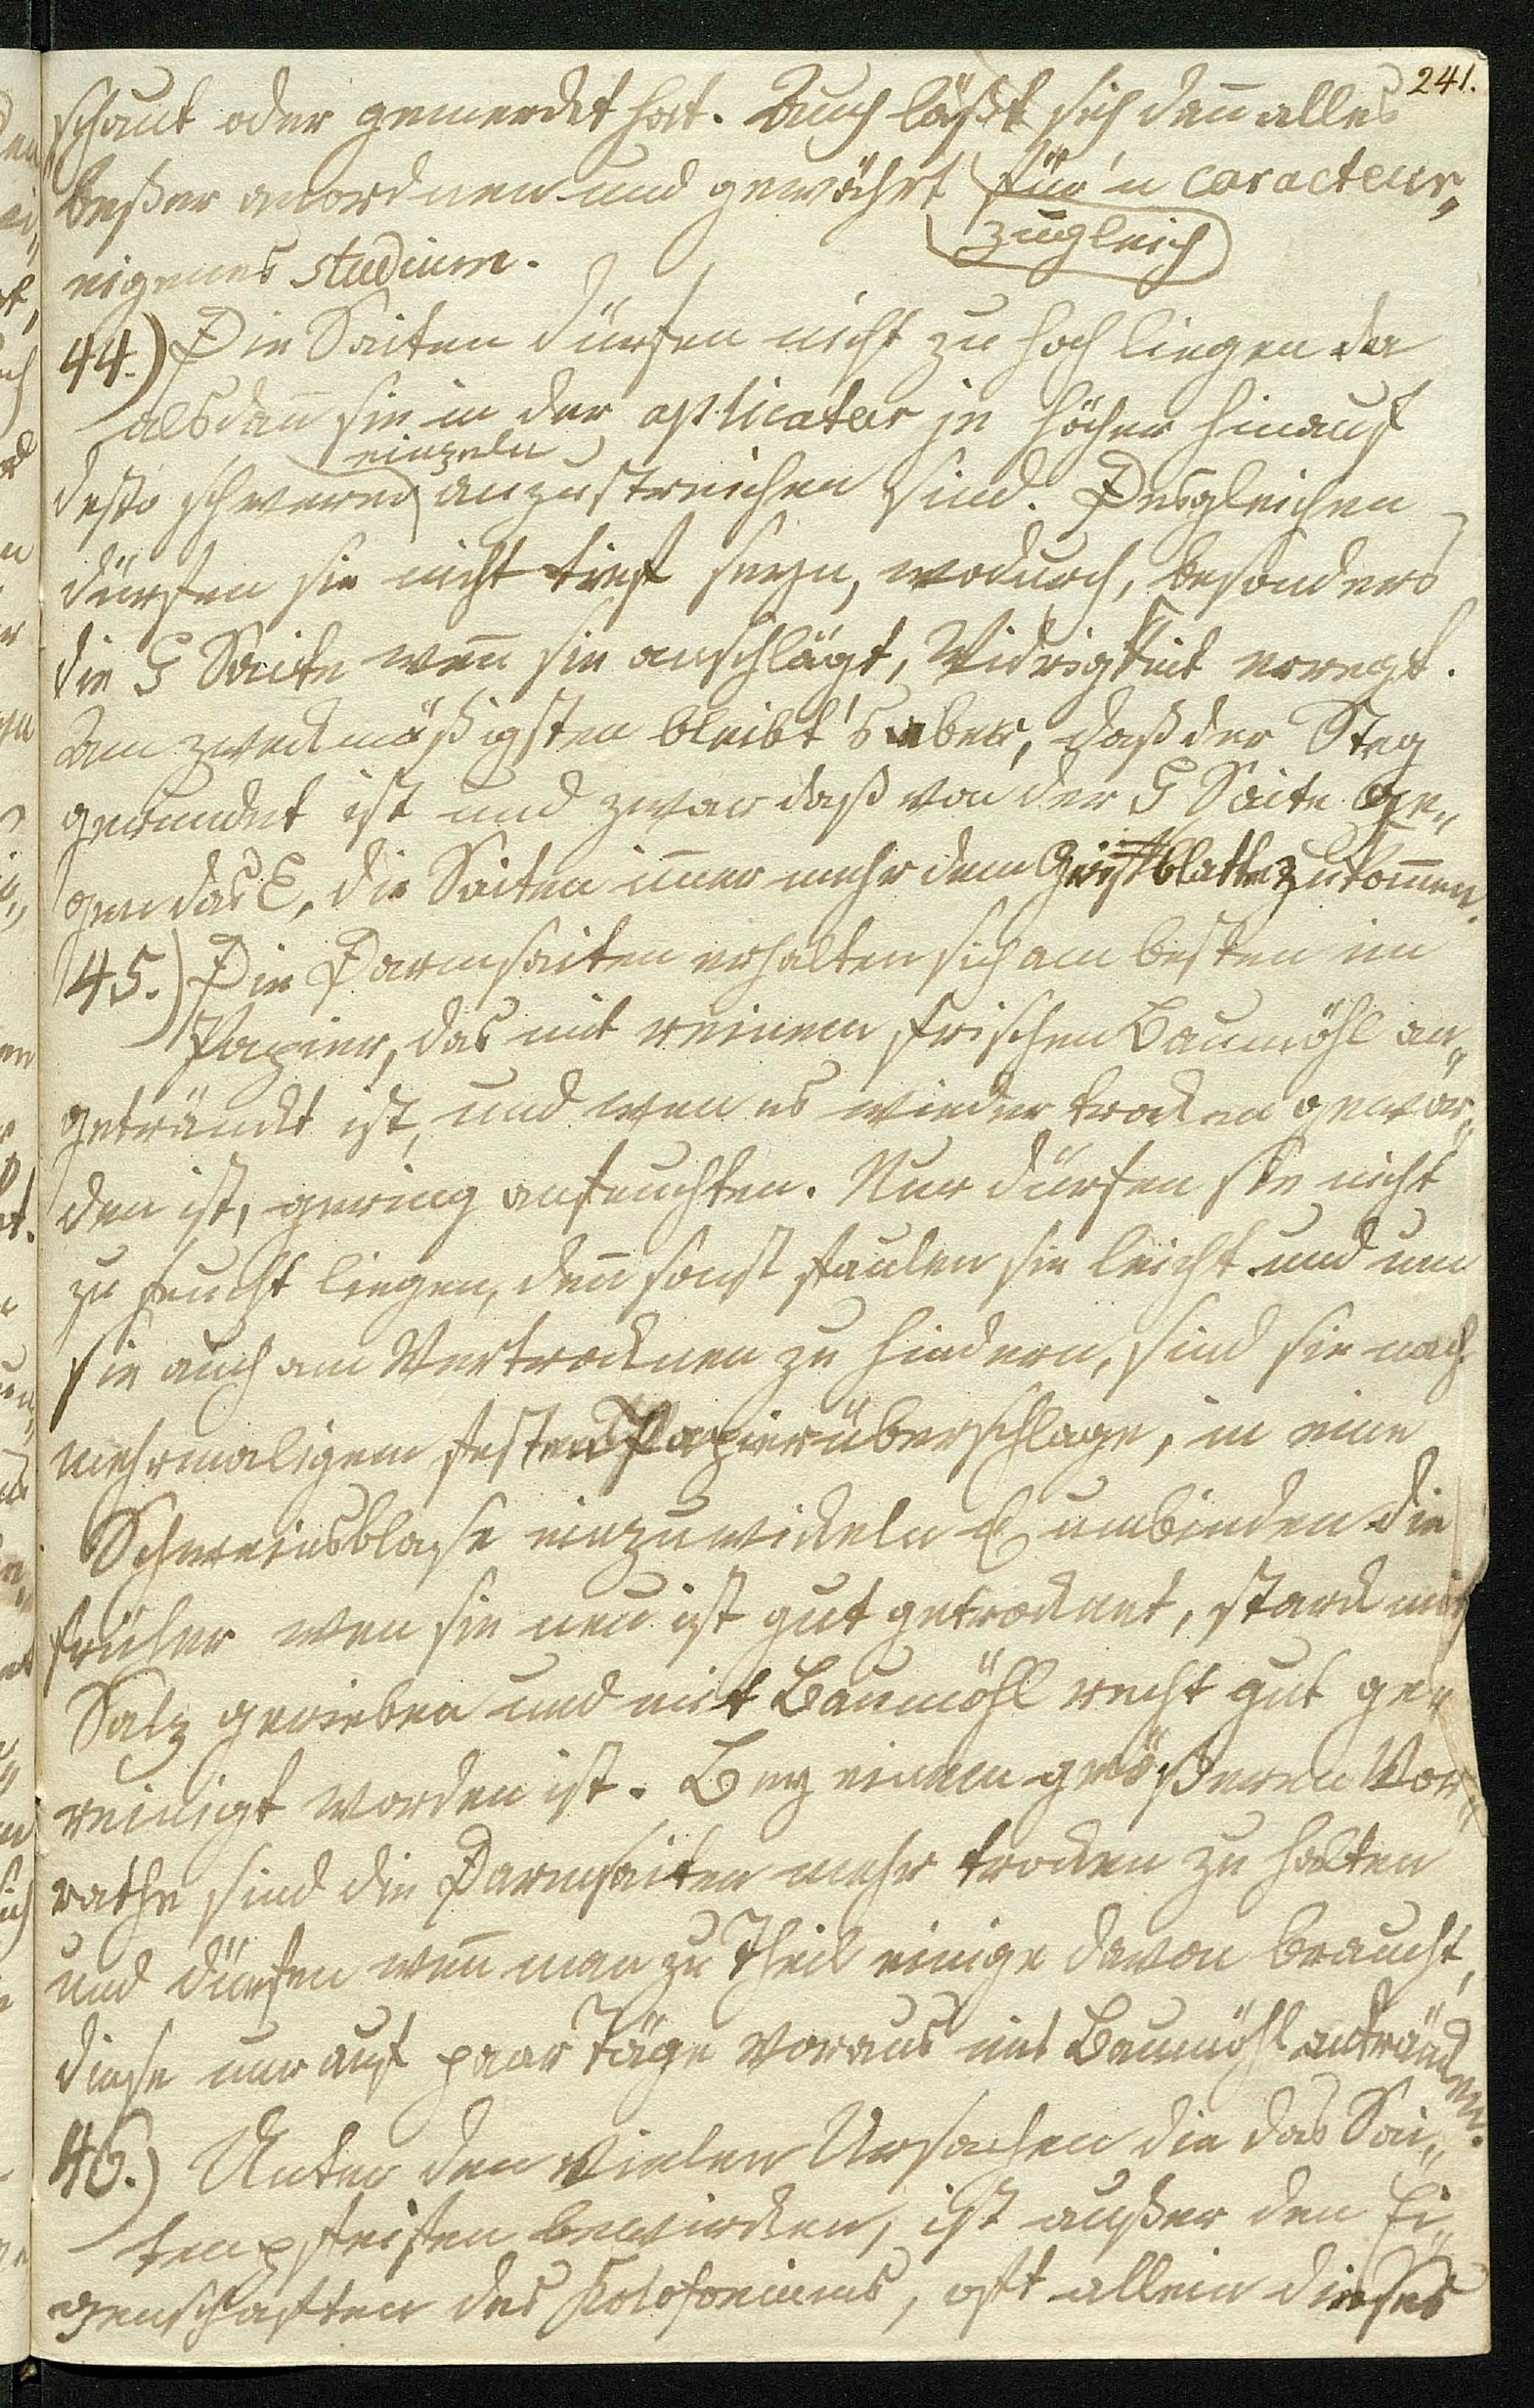 241.
schaut oder gemerckt hat. Auch läßt sich den̄ alles
beßer anordnen und gewährt für'n caracteur„
zugleich
eigenes studium.
44.) Die Saiten dürfen nicht zu hoch liegen da
alsdan̄ sie in der aplicatur je höher hinauf
einzeln
desto schwerer anzustreichen sind. Desgleichen
dürfen sie nicht tief seyn, wodurch, besonders
die G Saite wen̄ sie anschlägt, Widrigkeit erregt.
Am zweckmäßigsten bleibt's aber, daß der Steg
gerundet ist und zwar daß von der G Saite ge„
gen das E, die Saiten im̄er mehr dem Griffblatte zukom̄en.
45.) Die Darmsaiten erhalten sich am besten im
Papier, das mit reinem frischen Baumöhl an„
getränckt ist, und wen es wieder trocken gewor„
den ist, gering anfeuchten. Nur dürfen sie nicht
zu feucht liegen, den̄ sonst faulen sie leicht und um
sie auch am Vertrocknen zu hindern, sind sie nach
mehrmaligem festen Papierüberschlage, in eine
Schweinsblase einzuwickeln & umbinden die
früher wen sie neu ist gut getrocknet, starck mit
Salz gerieben und mit Baumöhl recht gut ge„
reinigt worden ist. Bey einem größeren Vor„
rathe sind die Darmsaiten mehr trocken zu halten
und dürfen wen̄ man zu Theil einige davon braucht,
diese nur auf paar Täge voraus mit Baumöhl anträncken.
46.) Unter den vielen Ursachen die das Sai„
tenpfeifen bewircken, ist außer den Ei„
genschaften des Kolofoniums, oft allein dieses